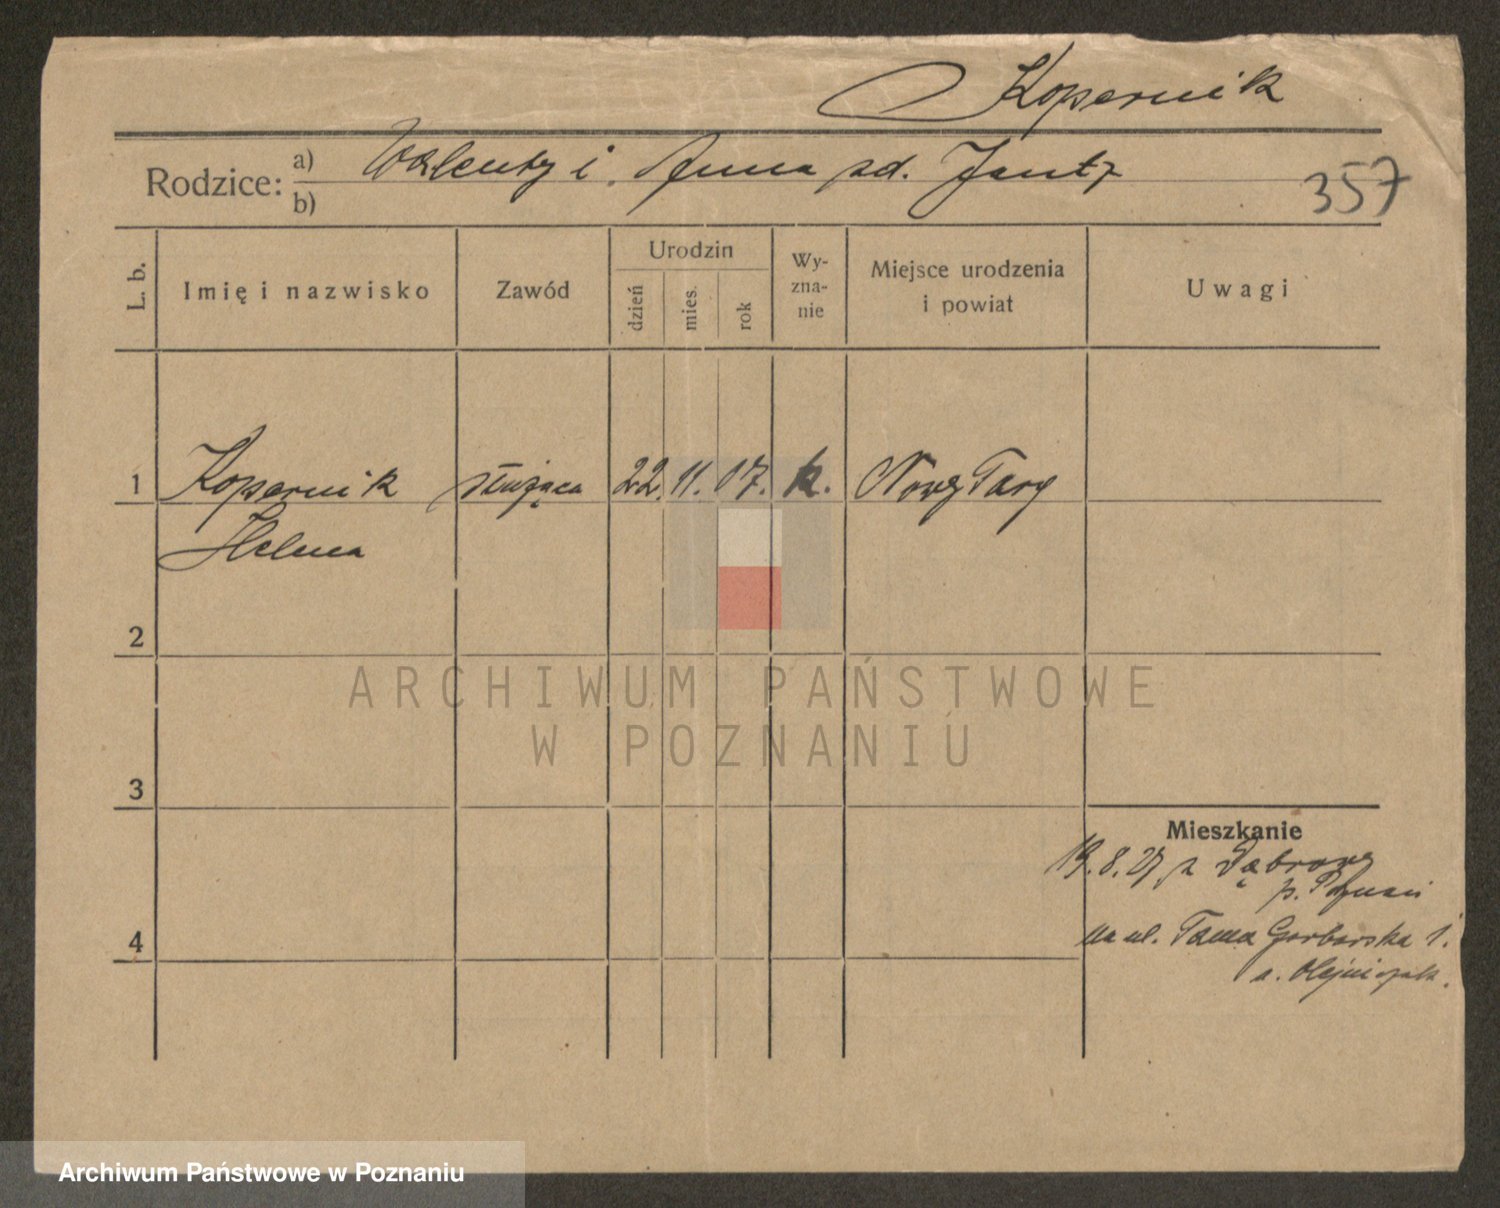 Kopernik
Rodzice: a) Walenty i Anna zd. Jantz
b)
357
L. b.
Imię i nazwisko
Zawód
Urodzin
dzień
mies.
rok
Wy-
zna-
nie
Miejsce urodzenia
i powiat
Uwagi
1 Kopernik służąca 22. 11. 07. k. Nowy Targ
Helena
2
3
4
Mieszkanie
19.8.27 z Dąbrowy
p. Poznań
na ul. Tama Garbarska 1.
u. Olejniczak.
ARCHIWUM PAŃSTWOWE
W POZNANIU
Archiwum Państwowe w Poznaniu